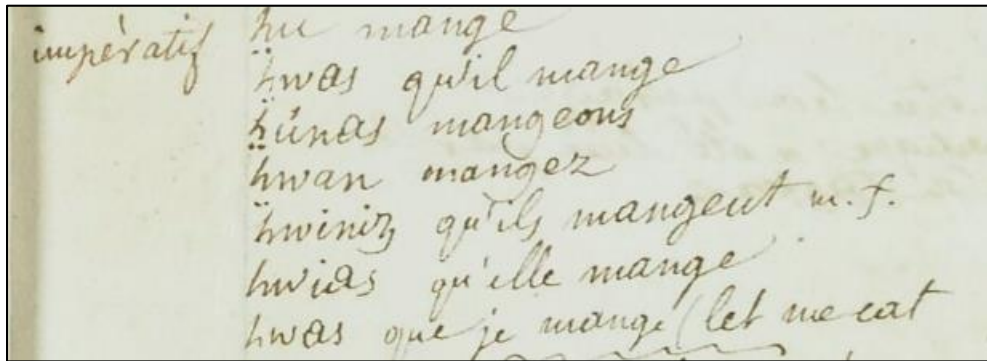 impératif ḧu mange
ḧwas qu'il mange
ḧúnas mangeons
ḧwan mangez
ḧwiniz qu'ils mangent m. f.
hwias qu'elle mange
hwas que je mange (let me eat